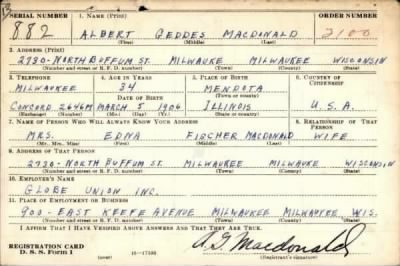 SERIAL NUMBER 1. NAME (Print) ORDER NUMBER
882 ALBERT GEDDES MACDONALD 3100
(First) (Middle) (Last)
2. ADDRESS (Print)
2730-NORTH BUFFUM ST. MILWAUKEE MILWAUKEE WISCONSIN
(Number and street or R. F. D. number) (Town) (County) (State)
3. TELEPHONE 4. AGE IN YEARS 5. PLACE OF BIRTH 6. COUNTRY OF CITIZENSHIP
MILWAUKEE 34 MENDOTA
DATE OF BIRTH (Town or county)
CONCORD 2646M MARCH 5 1906 ILLINOIS U.S.A.
(Exchange) (Number) (Mo.) (Day) (Yr.) (State or country)
7. NAME OF PERSON WHO WILL ALWAYS KNOW YOUR ADDRESS 8. RELATIONSHIP OF THAT PERSON
MRS. EDNA FISCHER MACDONALD WIFE
(Mr., Mrs., Miss) (First) (Middle) (Last)
9. ADDRESS OF THAT PERSON
2730-NORTH BUFFUM ST. MILWAUKEE MILWAUKEE WISCONSIN
(Number and street or R. F. D. number) (Town) (County) (State)
10. EMPLOYER'S NAME
GLOBE UNION INC.
11. PLACE OF EMPLOYMENT OR BUSINESS
900-EAST KEEFE AVENUE MILWAUKEE MILWAUKEE WIS.
(Number and street or R. F. D. number) (Town) (County) (State)
I AFFIRM THAT I HAVE VERIFIED ABOVE ANSWERS AND THAT THEY ARE TRUE.
REGISTRATION CARD
D. S. S. Form 1 16-17105 A.G. Macdonald
(Registrant's signature)